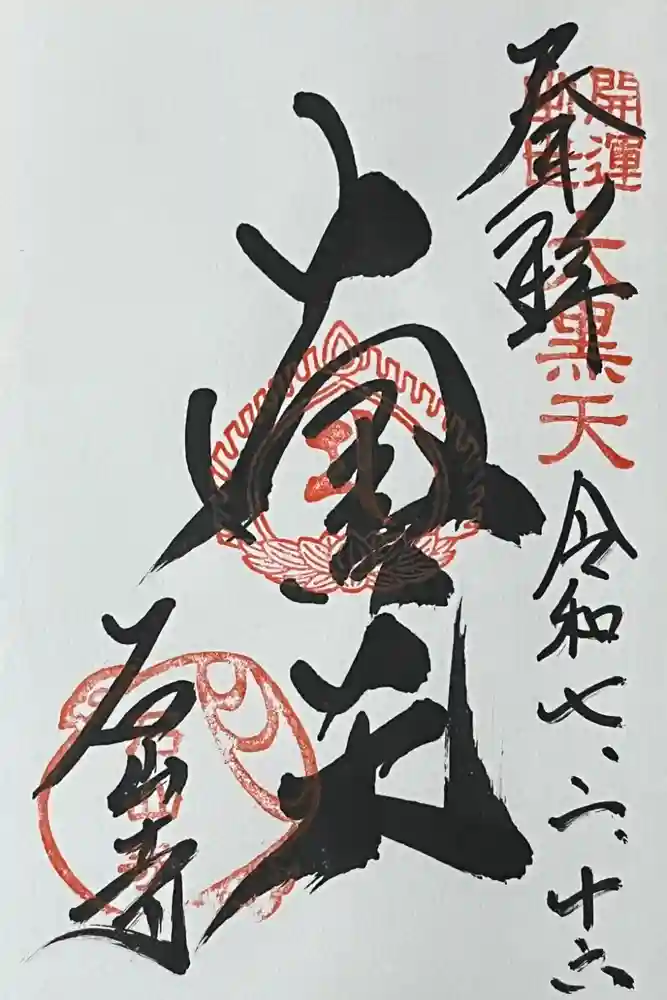 奉拝
開運
出世
大黒天
令和七、六、十六
大黒天
石山寺